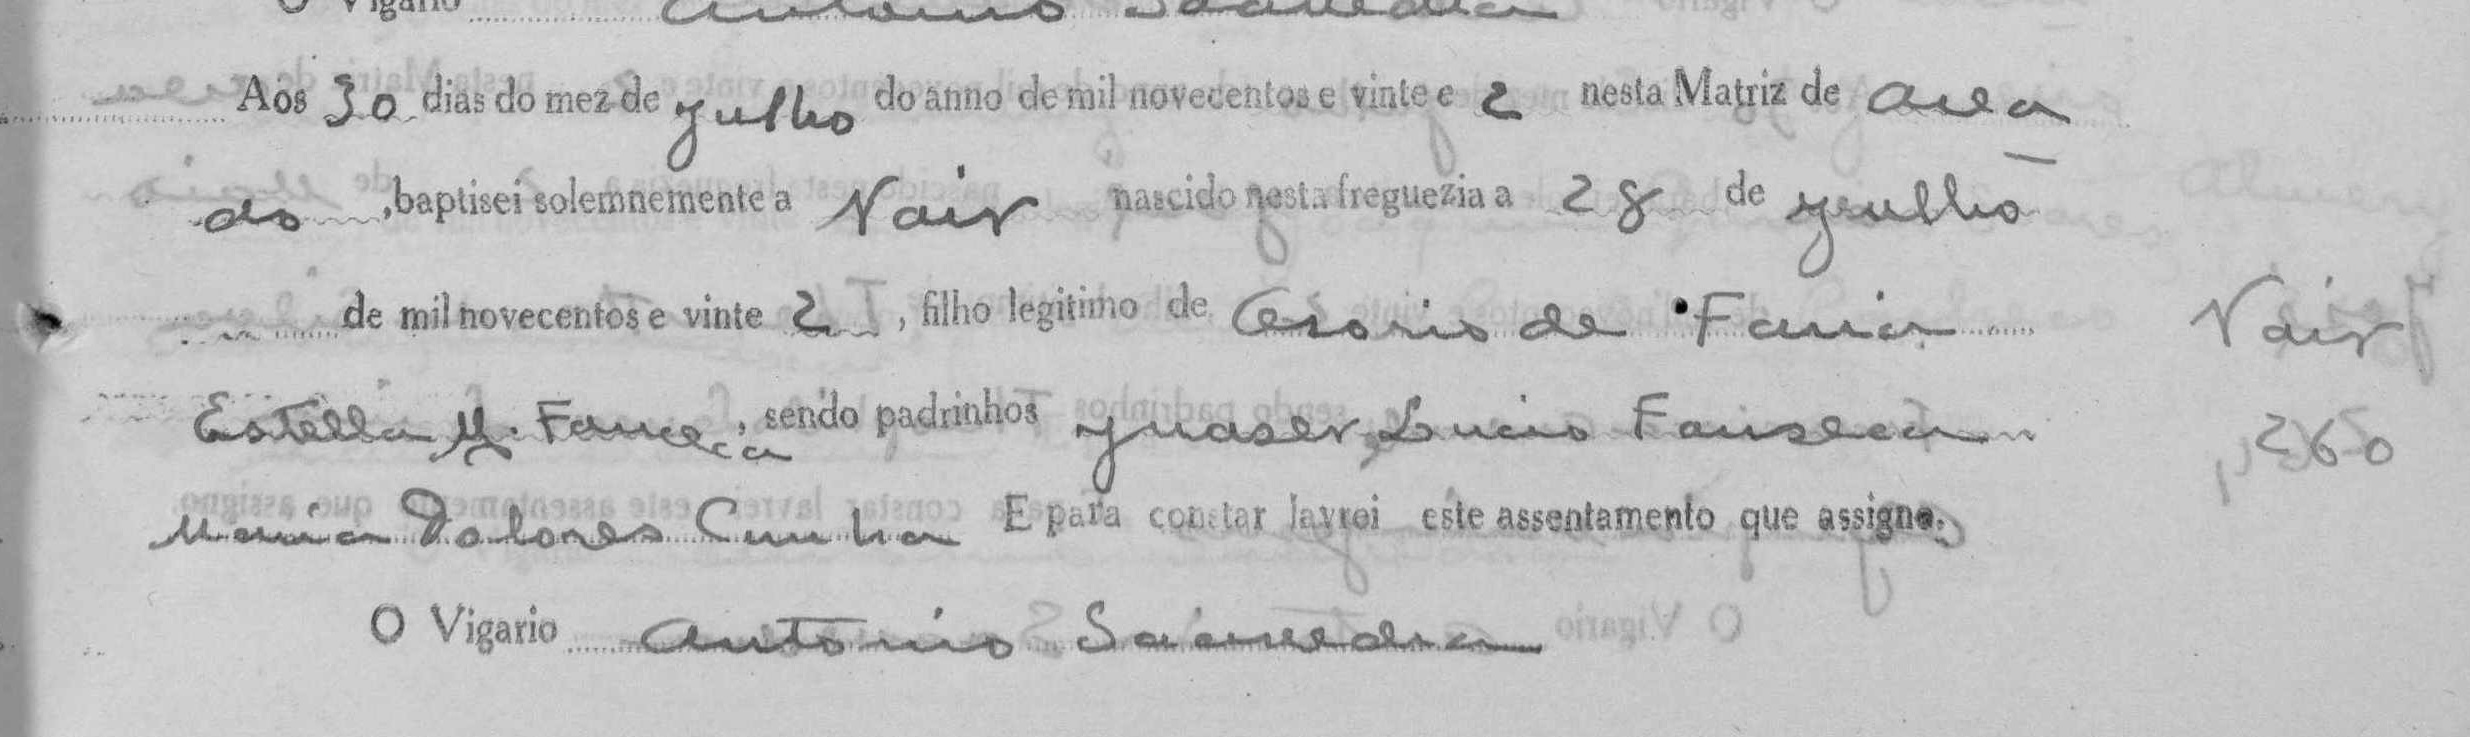 O Vigario Antonio Saavedra
Aos 30 dias do mez de julho do anno de mil novecentos e vinte e 2 nesta Matriz de Area
do, baptisei solemnemente a Nair nascido nesta freguezia a 28 de julho
de mil novecentos e vinte 2, filho legitimo de Cesario de Faria
Nair
Estella M. Fonceca, sendo padrinhos Lucio Fonseca
260
Maria Dolores Cunha E para constar lavrei este assentamento que assigno.
O Vigario Antonio Saavedra